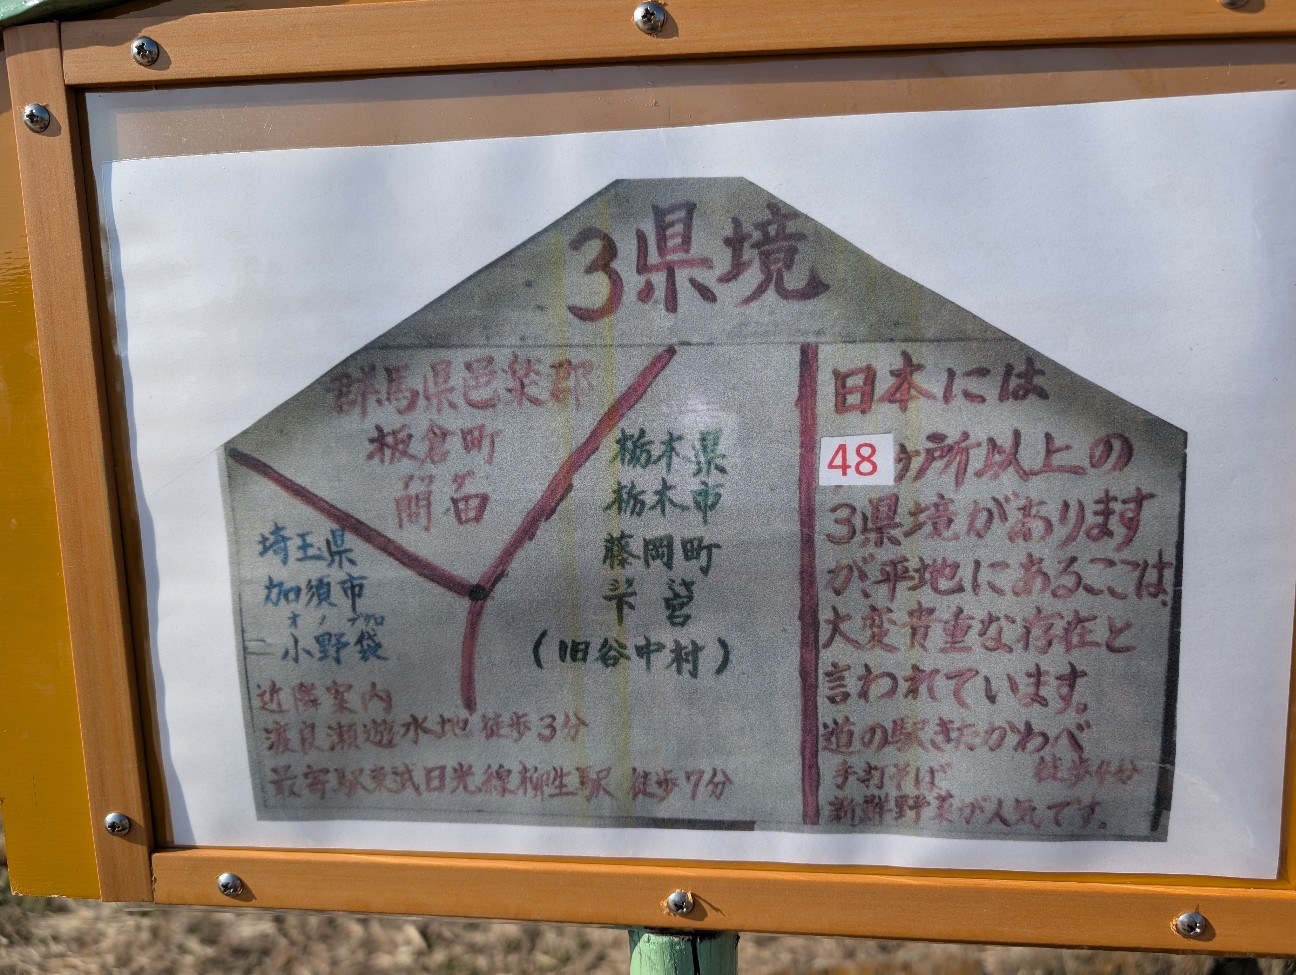 3県境
群馬県邑楽郡
板倉町
海老瀬
栃木県
栃木市
藤岡町
下宮
(旧谷中村)
埼玉県
加須市
オノブクロ
小野袋
近隣案内
渡良瀬遊水地 徒歩3分
最寄駅東武日光線柳生駅 徒歩7分
日本には
48ヶ所以上の
3県境があります
が、平地にあるここは、
大変貴重な存在と
言われています。
道の駅きたかわべ
手打そば 徒歩4分
新鮮野菜が人気です。